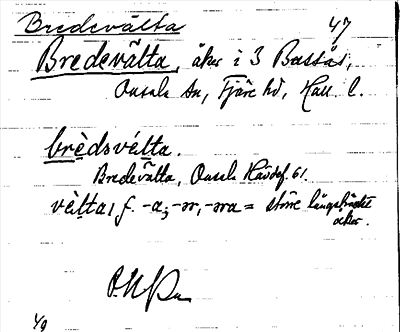 Bredevälta
47
Bredevälta, åker i 3 Bassås,
Onsala sn, Fjäre hd, Hall. l.
brèdsvélta.
Bredevälta, Onsala Hävdef. 61.
vèlta, f. -a, -ər, -əra = större långsträckt
åker.
49